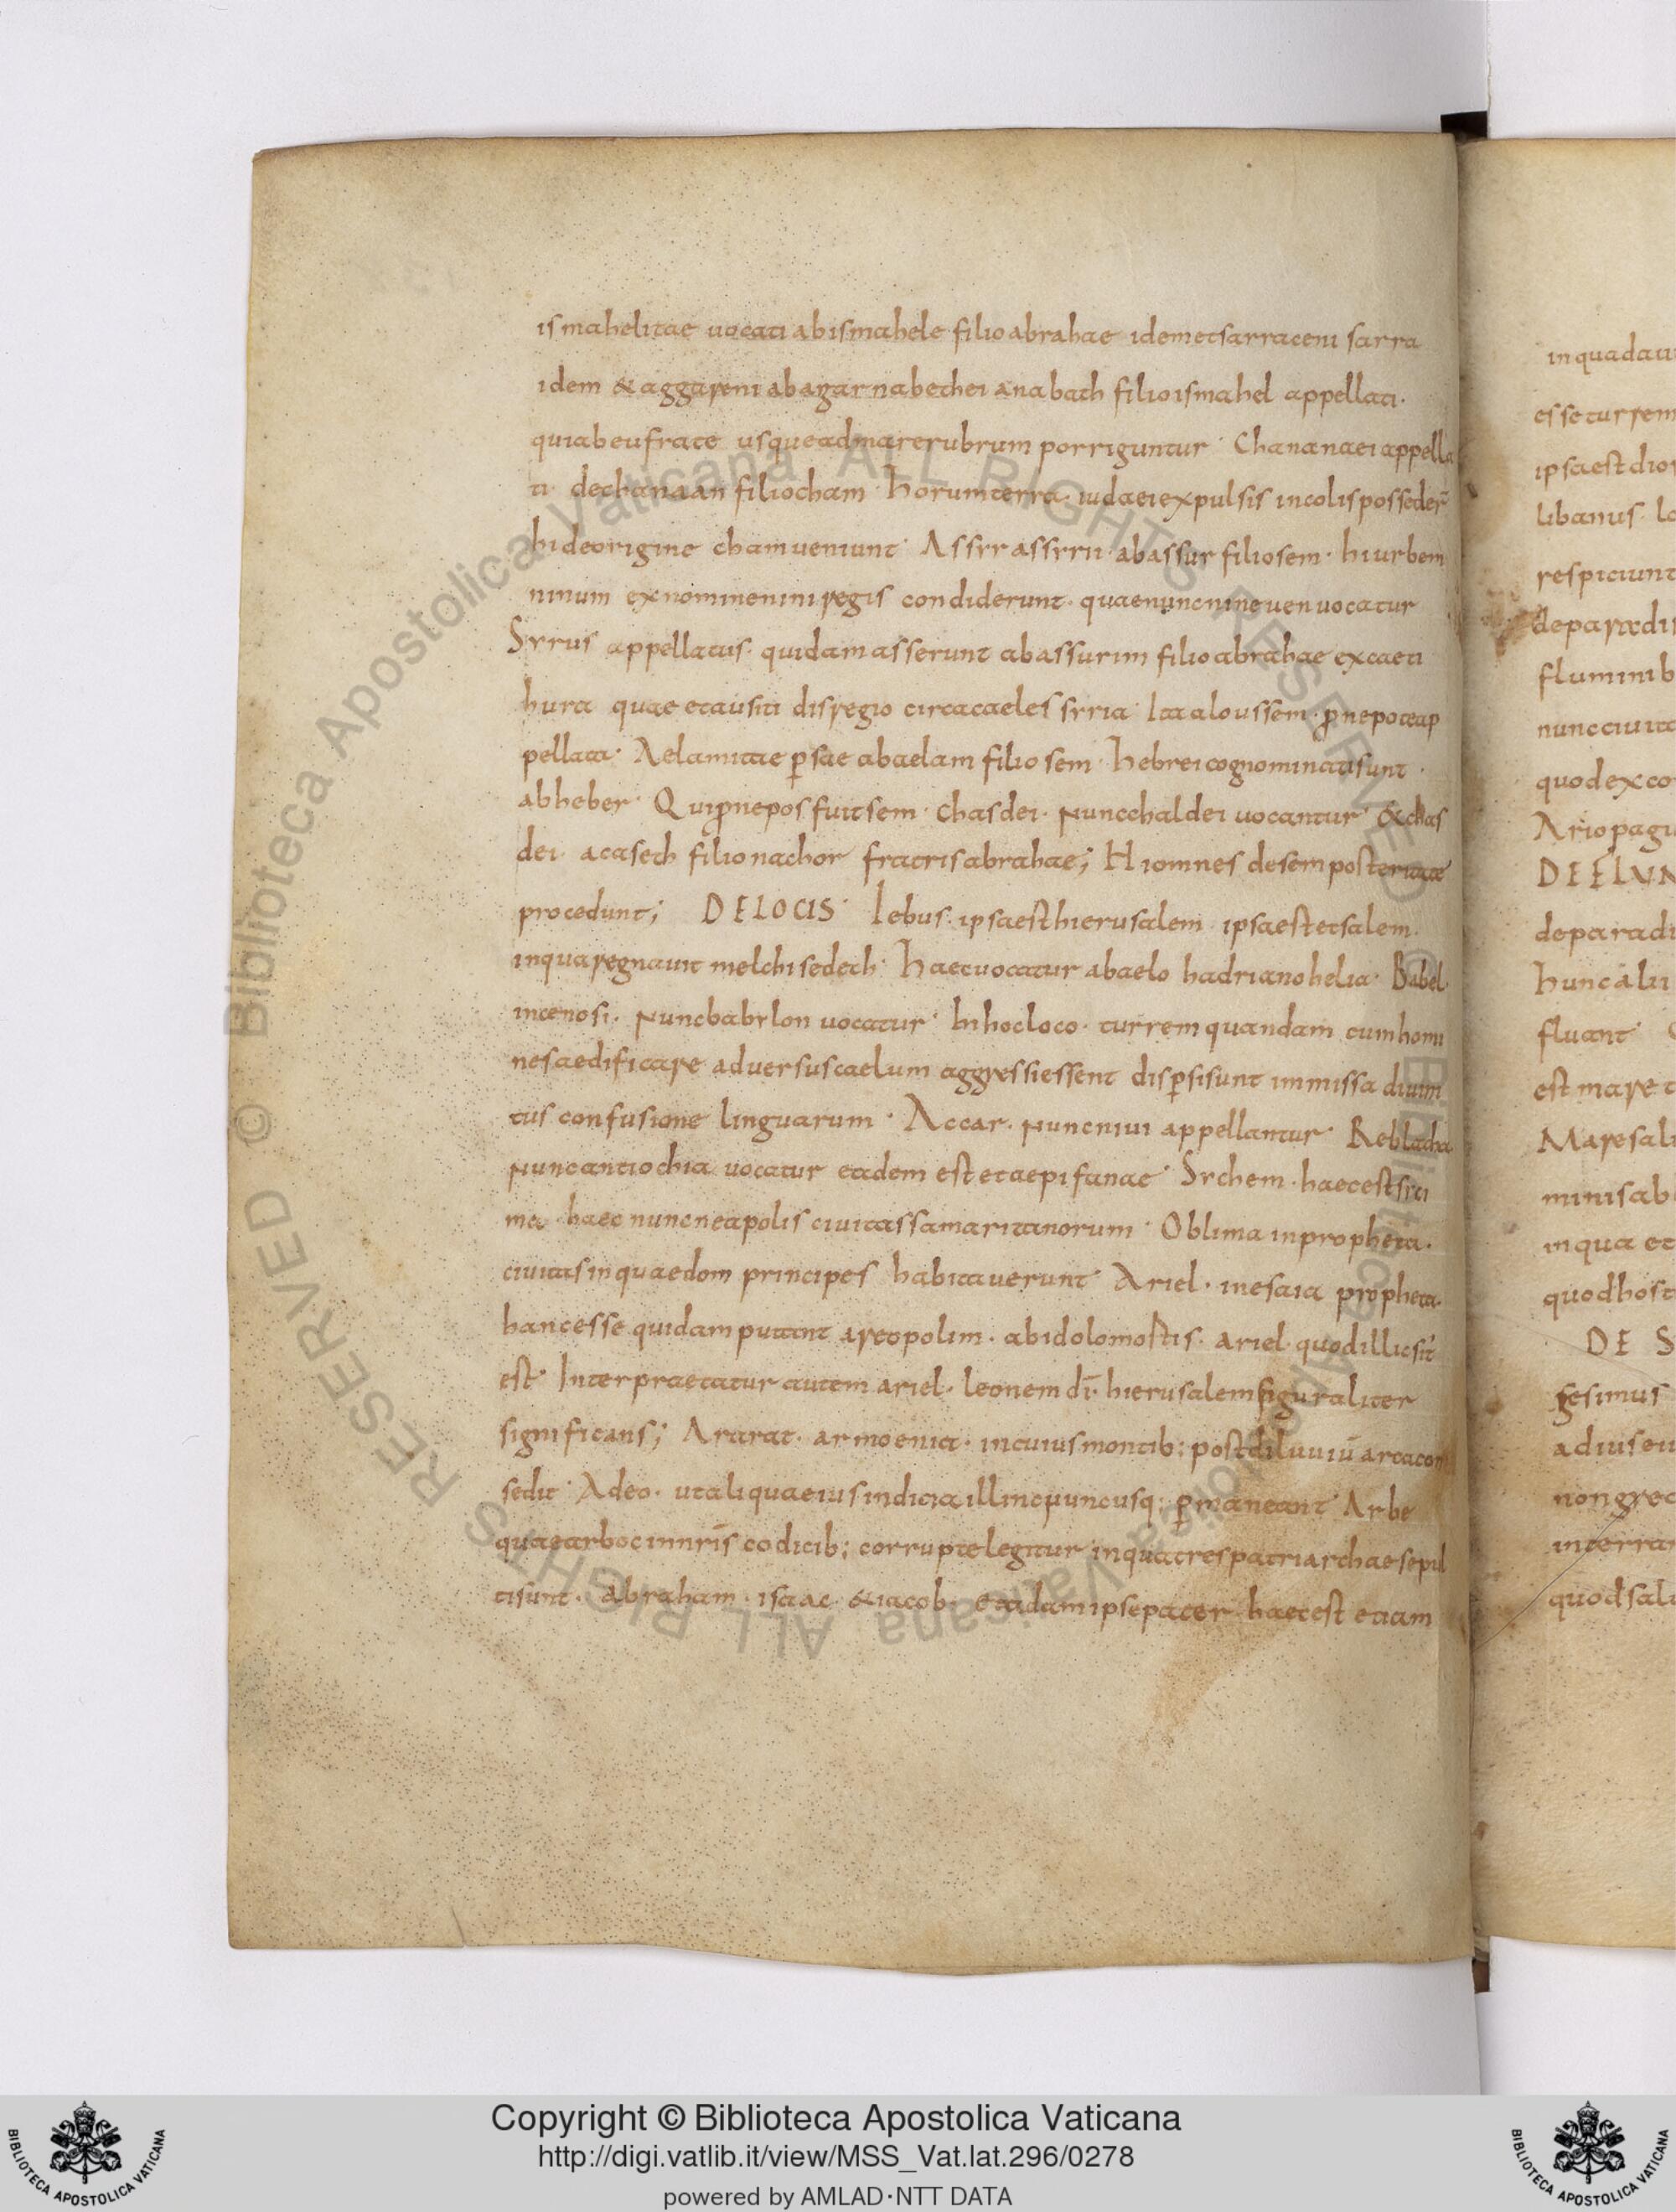 ismahelitae uocati abismahele filioabrahae idemetsarraceni sarra
idem & aggareni abagar nabethei anabath filioismahel appellati·
quiabeufrate usqueadmarerubrum porriguntur· Chananaei appella
ti· dechanaan filiocham· horumterra· iudaeiexpulsis incolisposseder̄
hideorigine chamueniunt· Assyrassyrii abassur filiosem· hiurbem
ninum exnomineniniregis condiderunt· quaenuncnineuenuocatur
Syrus appellatus· quidamasserunt abassurim filioabrahae excaeti
hura quae etausiti disregio circacaeles syria· Itaaloussem· ꝓnepoteap
pellata· Aelamitae ꝑsae abaelam filiosem· hebreicognominatisunt·
abheber· Quiꝓnepos fuitsem· chasdei· Nuncchaldei uocantur· &chas
dei· acaseth filionachor fratrisabrahae; Hiomnes desemposteritate
procedunt; DELOCIS· Iebus· ipsaesthierusalem ipsaestetsalem·
inquaregnauit melchisedech· Haecuocatur abaelo hadrianohelia· Babel·
incenosi· Nuncbabylon uocatur· Inhocloco· turremquandam cumhomi
nesaedificare aduersuscaelum aggressiessent disꝑsisunt immissa diuini
tus confusione linguarum· Accar· Nuncniui appellantur· Reblatha
Nuncantiochia uocatur eadem estetaepifanae· Sychem· haecestsici
ma· haec nuncneapolis ciuitassamaritanorum· Oblima inpropheta·
ciuitasinquaedom principes habitauerunt· Ariel· inesaia propheta·
hancesse quidamputant areopolim· abidolomostis· ariel· quodillicsit
est· Interpraetatur autem ariel· leonem dī· hierusalemfiguraliter
significans; Ararat· armoenia· incuiusmontib; postdiluuiū arcacon
sedit· Adeo· utaliquaeiusindicia illincnuncusq; ꝑmaneant· Arbe
quaearbocinnr̄is codicib; corruptelegitur inquatrespatriarchaesepul
tisunt· abraham· isaac· &iacob· etadamipsepater haecest etiam
inquadaui
esseturrem
ipsaestdior
libanus· lo
respiciunt
deparadis
fluminib
nuncciuita
quodexco
Ariopagu
DEFLUM
deparadi
huncalii
fluant
estmaret
Maresali
minisab
inqua et
quodhost
DE S
gesimus
adiuseu
nongrec
interrar
quodsali
© Biblioteca Apostolica Vaticana ALL RIGHTS RESERVED
© Biblioteca Apostolica Vaticana ALL RIGHTS RESERVED
Copyright © Biblioteca Apostolica Vaticana
http://digi.vatlib.it/view/MSS_Vat.lat.296/0278
powered by AMLAD·NTT DATA
BIBLIOTECA APOSTOLICA VATICANA
BIBLIOTECA APOSTOLICA VATICANA